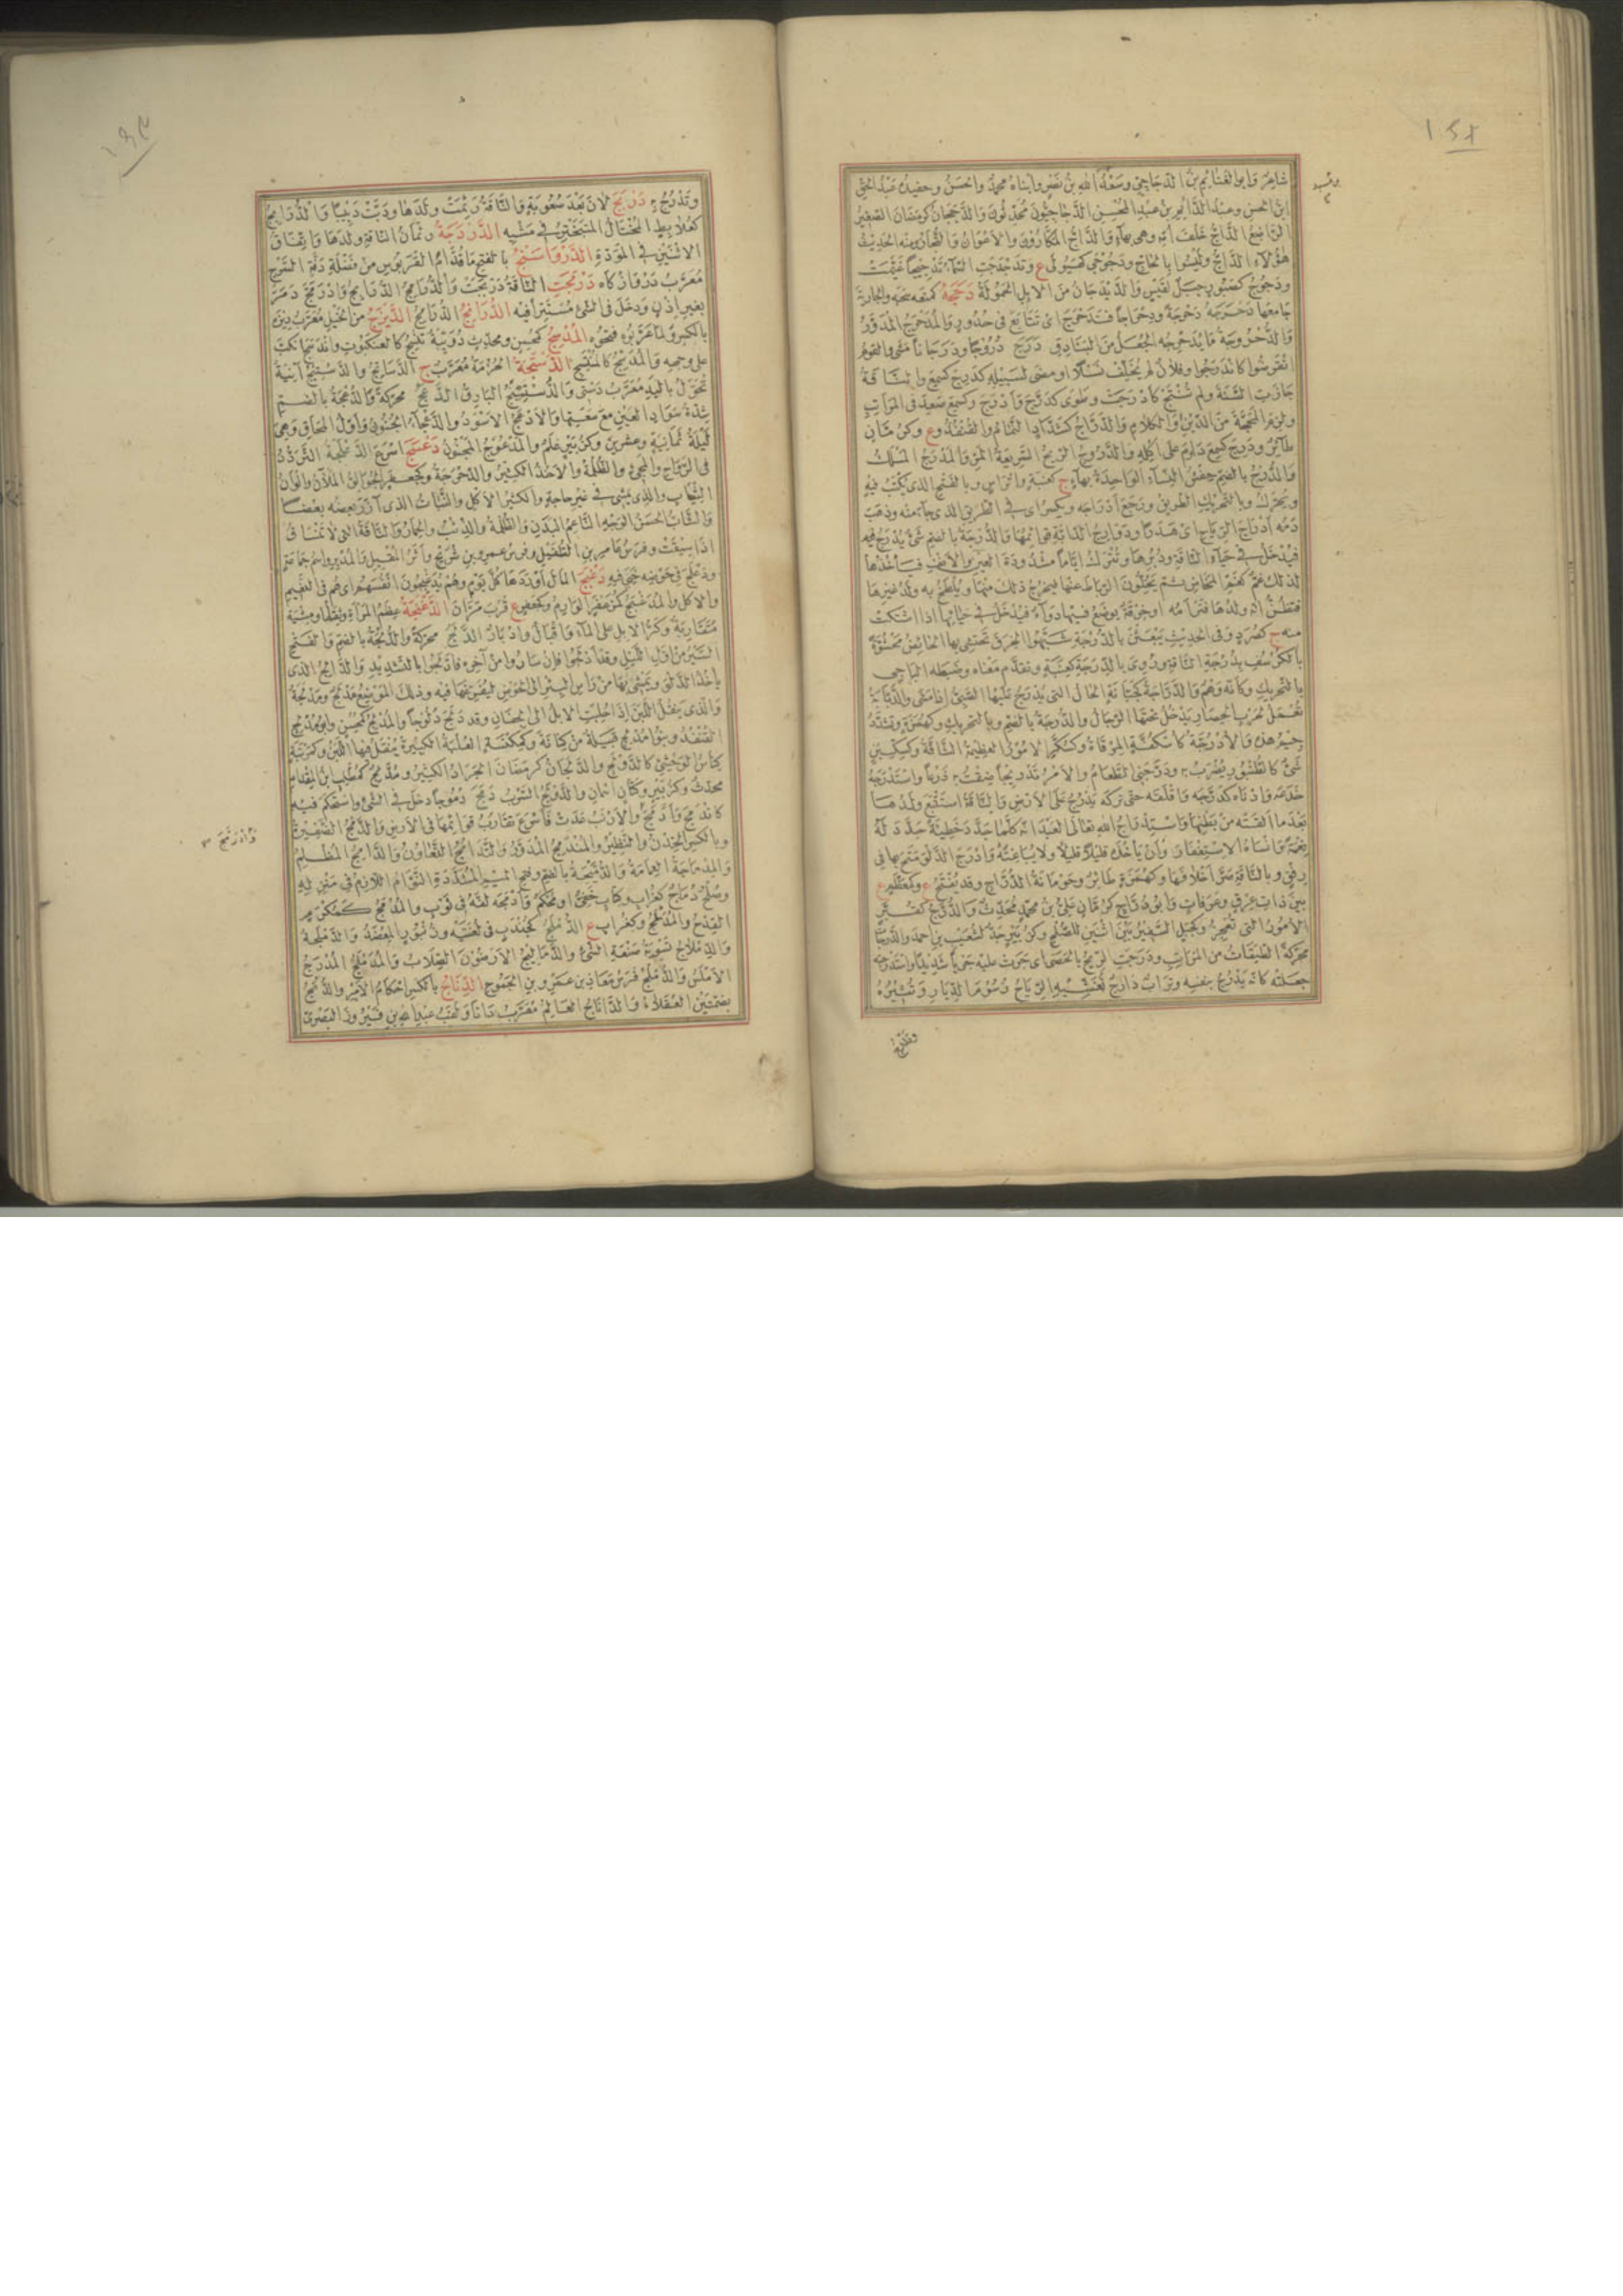 شاعر وابو الغنائم بن الدجاجي وسعد الله بن نصر وابناه محمد والحسن وحفيده عبد الحق
ابن الحسن وعبد الدائم بن عبد المحسن الدجاجيون محدثون والدججان كرمضان الصغير
الراضع الداج خلف امه وهي بهاء والداج المكارون والاعوان والتجار ومنه الحديث
هؤلاء الداج وليسوا بالحاج ودجوجى كهيولى ع وتدجدجت السماء تدجيجا غيمت
ودجوج كصبور جبل لقيس والديدجان من الابل الحمولة دحجه كمنعه سحبه والجارية
جامعها دحرجه دحرجة ودحراجا فتدحرج اى تتابع فى حدور والمدحرج المدور
والدحروجة ما يدحرجه الجعل من البنادق درج دروجا ودرجانا مشى والقوم
انقرضوا كاندرجوا وفلان لم يخلف نسلا او مضى لسبيله كدرج كسمع والناقة
جازت السنة ولم تنتج كادرجت وطوى كدرج وادرج وكسمع صعد فى المراتب
ولزم المحجة من الدين والكلام والدراج كشداد النمام والقنفذ وع وكرمان
طائر ودرج كسمع دام على اكله والدروج الريح السريعة المر والمدرج المسلك
والدرج بالضم حفش النساء الواحدة بهاء ج كعنبة واتراس وبالفتح الذى يكتب فيه
ويحرك وبالتحريك الطريق ورجع ادراجه ويكسر اى فى الطريق الذى جاء منه وذهب
دمه ادراج الرياح اى هدرا ودوارج الدابة قوائمها والدرجة بالضم شئ يدرج فيه
فيدخل فى حياء الناقة ودبرها وتترك اياما مشدودة العين والانف فيأخذها
لذلك غم كغم المخاض ثم يحلون الرباط عنها فيخرج ذلك منها ويلطخ به ولد غيرها
فتظن انه ولدها فترأمه او خرقة يوضع فيها دواء فيدخل فى حيائها اذا اشتكت
منه ج كصرد وفى الحديث يبعثن بالدرجة شبهوا الخرق تحتشى بها الحائض محشوة
بالكرسف بدرجة الناقة وروى بالدرجة كعنبة وتقدم معناه وضبطه الباجى
بالتحريك وكانه وهم والدراجة كجبانة الحال التى يدرج عليها الصبى اذا مشى والدبابة
تعمل لحرب الحصار يدخل تحتها الرجال والدرجة بالضم وبالتحريك وكهمزة وتشدد
جيم هذه والادرجة كاسكفة المرقاة وكسكر الامور العظيمة الشاقة وكسكين
شئ كالطنبور يضرب به ودرجنى الطعام والامر تدريجا ضقت به ذرعا واستدرجه
خدعه وادناه كدرجه واقلقه حتى تركه يدرج على الارض والناقة استتبعت ولدها
بعد ما القته من بطنها واستدراج الله تعالى العبد انه كلما جدد خطيئة جدد له
نعمة وانساه الاستغفار وان يأخذه قليلا قليلا ولا يباغته وادرج الدلو متح بها فى
رفق وبالناقة صر اخلافها وكهمزة طائر وحومانة الدراج وقد يفتح ع وكمعظم ع
بين ذات عرق وعرفات وابن دراج كرمان على بن محمد محدث والدرج كقبر
الامور التى تعجز وكجبل السفير بين اثنين للصلح وكزبير جد لشعيب بن احمد والدرجات
محركة الطبقات من المراتب ودرجت الريح بالحصى اى جرت عليه جريا شديدا واستدرجته
جعلته كانه يدرج بنفسه وتراب دارج تغشيه الرياح رسوم الديار وتثيره
وتدرج
وتدرج به دربج لان بعد صعوبة والناقة رئمت ولدها ودبت دبيبا والدرابج
كعلابط المختال المتبختر فى مشيه الدردجة رئمان الناقة ولدها واتفاق
الاثنين فى المودة الدرواسنج بالفتح ما قدام القربوس من فضلة دفة السرج
معرب دروازگاه درمجت الناقة دربجت والدرامج الدرابج وادرمج دمر
بغير اذن ودخل فى الشئ مستترا فيه الدزانج الديزج من الخيل معرب ديزه
بالكسر ولما عربوه فتحوه المدسج كمحسن ومحدث دويبة تنسج كالعنكبوت واندسج انكب
على وجهه والمدسج كالمنتسج الدستجة الحزمة معرب ج الدساتج والدستيج آنية
تحول باليد معرب دستى والدستينج اليارق الدعج محركة والدعجة بالضم
شدة سواد العين مع سعتها والادعج الاسود والدعجاء الجنون واول المحاق وهى
ليلة ثمانية وعشرين وكزبير علم والمدعوج المجنون دعسج اسرع الدعلجة التردد
فى الذهاب والمجئ والظلمة والاخذ الكثير والدحرجة وكجعفر الجوالق الملآن والوان
الثياب والذى يمشى فى غير حاجة والكثير الاكل والنبات الذى آزر بعضه بعضا
والشاب الحسن الوجه الناعم البدن والظلمة والذئب والحمار والناقة التى لا تنساق
اذا سيقت وفرس عامر بن الطفيل وفرس عمرو بن شريح واثر المقبل والمدبر واسم جماعة
ودعلج فى حوضه جبى فيه دغبج المال اوردها كل يوم وهم يدغبجون انفسهم اى هم فى النعيم
والاكل والمدغبج كمزعفر الوارم وكجعفر ع قرب مران الدغنجة عظم المرأة وثقلها ومشية
متقاربة وكر الابل على الماء واقبال وادبار الدلج محركة والدلجة بالضم والفتح
السير من اول الليل وقد ادلجوا فان ساروا من آخره فادلجوا بالتشديد والدالج الذى
يأخذ الدلو ويمشى بها من رأس البئر الى الحوض ليفرغها فيه وذلك الموضع مدلج ومدلجة
والذى ينقل اللبن اذا حلبت الابل الى الجفان وقد دلج دلوجا والمدلج كمحسن وابو مدلج
القنفذ وبنو مدلج قبيلة من كنانة وكمكنسة العلبة الكبيرة ينقل فيها اللبن وكمرتبة
كناس الوحشى كالدولج والدلجان كرمضان الجراد الكثير ومدلج كمطلب ابن المقدام
محدث وكزبير وكتان اسمان والدولج السرب دمج دموجا دخل فى الشئ واستحكم فيه
كاندمج وادمج والارنب عدت فاسرع تقارب قوائمها فى الارض والدمج الضفيرة
وبالكسر الخدن والنظير والمندمج المدور والتدامج التعاون والدامج المظلم
والمدماجة العمامة والدميجة بالضم وفتح الميم المشددة النوام اللازم فى منزله
وصلح دماج كغراب وكتاب خفى او محكم وادمجه لفه فى ثوب والمدمج كمكرم
القدح والمدملج وكغراب ع الدملج كجندب فى لغتيه وزنبور المعضد والدملجة
والدملاج تسوية صنعة الشئ والدماليج الارضون الصلاب والمدملج المدرج
الاملس والدملج فرس معاذ بن عمرو بن الجموح الدناج بالكسر احكام الامر والدنج
بضمتين العقلاء والداناج العالم معرب دانا ولقب عبد الله بن فيروز البصرى